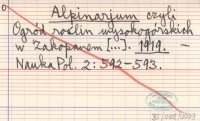 Alpinarjum czyli
Ogród roślin wysokogórskich
w Zakopanem [...]. 1919. —
Nauka Pol. 2: 592-593.